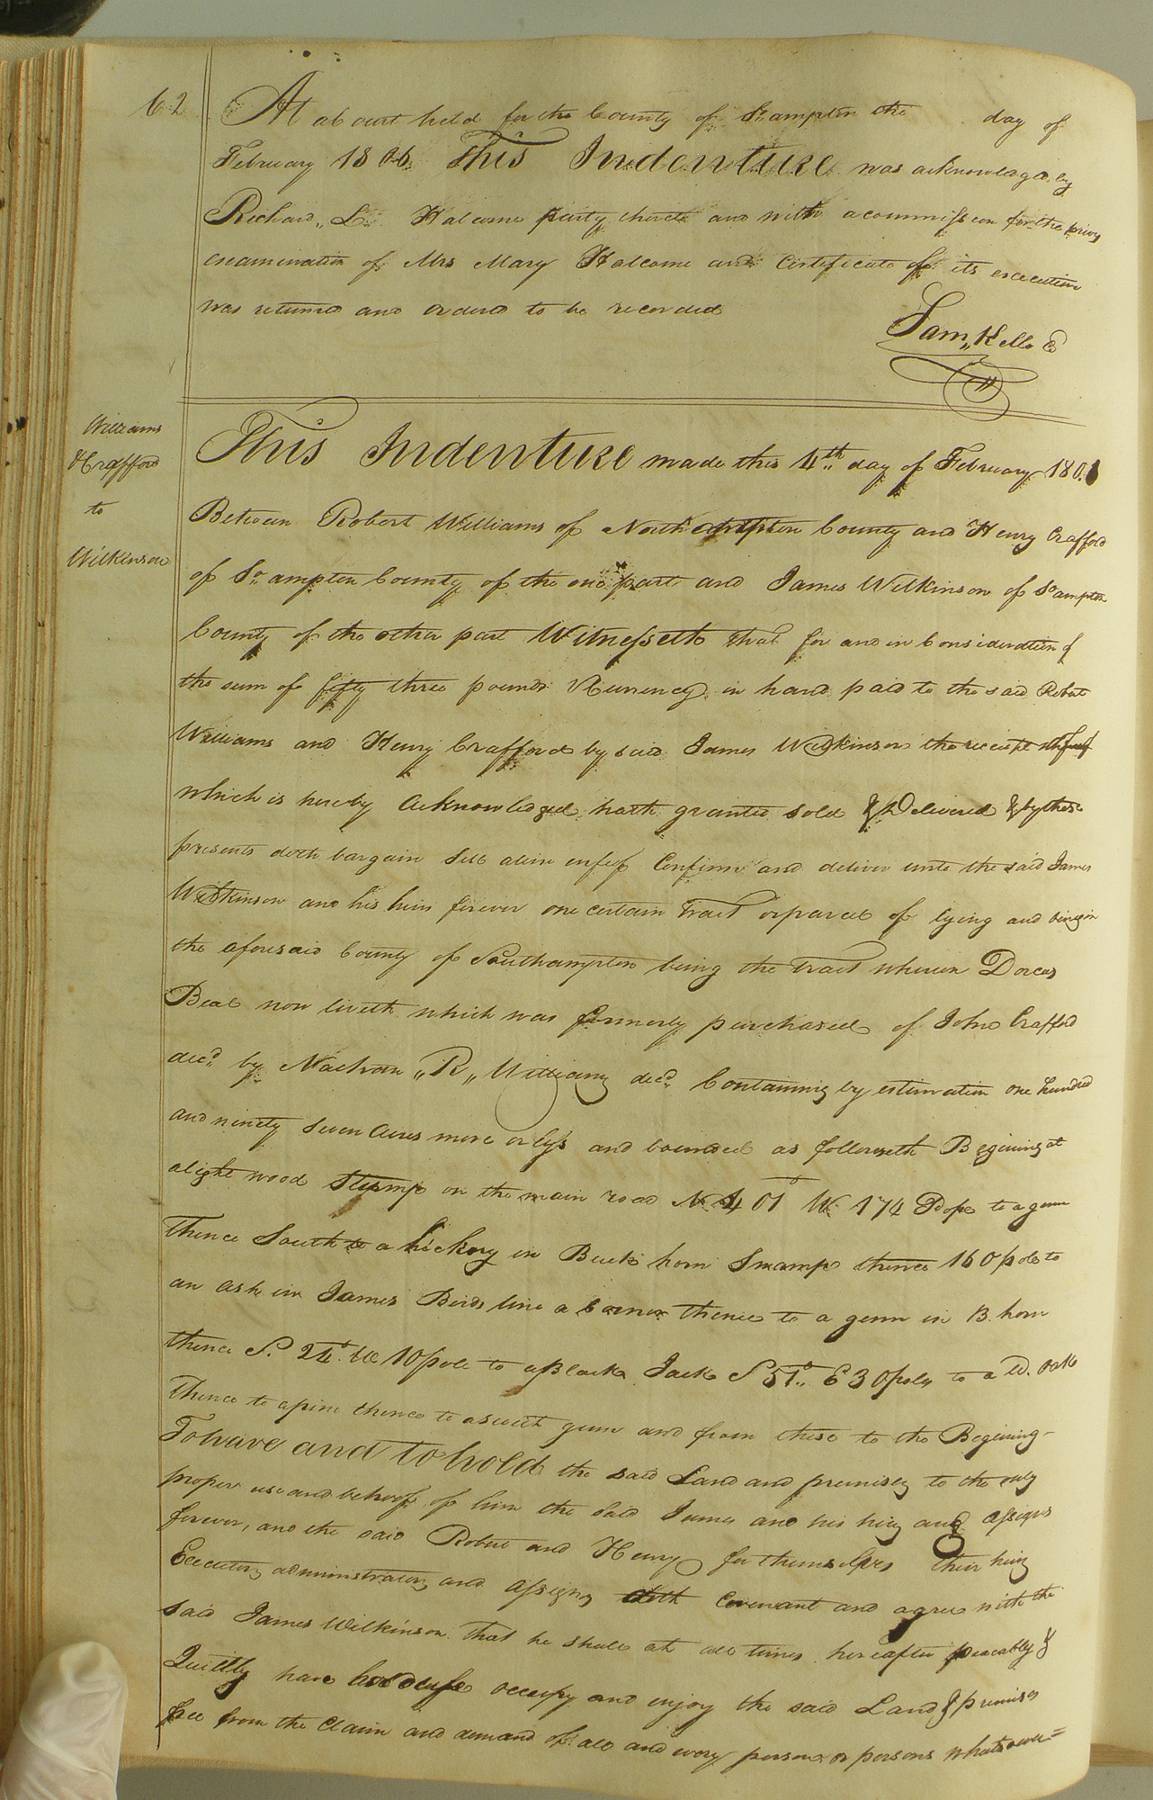 62
At a Court held for the County of So.ampton the day of
February 1806 This Indenture was acknowledged by
Richard "L" Halcome party thereto and with a commission for the privy
examination of Mrs Mary Halcome and Certificate of its execution
was returned and ordered to be recorded
Sam,, Kello C
Williams
& Crafford
to
Wilkinson
This Indenture made this 4th day of February 180
Between Robert Williams of Northampton County and Henry Crafford
of So.ampton County of the one part and James Wilkinson of So.ampton
County of the other part Witnesseth that for and in Consideration of
the sum of fifty three pounds Currency in hand paid to the said Robert
Williams and Henry Crafford by said James Wilkinson the receipt
which is hereby Acknowledged hath granted sold & Delivered & by these
presents doth bargain Sell alien enfeof Confirm and deliver unto the said James
Wilkinson and his heirs forever one certain Tract or parcel of lying and being in
the aforesaid County of Southampton being the tract wherein Dorcas
Beal now liveth which was formerly purchased of John Crafford
decd. by Nathan "R" Williams decd. Containing by estimation one hundred
and ninety seven Acres more or less and bounded as followeth Begining at
a light wood Stump on the main road N W 174 Pole to a gum
Thence South to a hickory in Buck horn Swamp thence 160 pole to
an ash in James Birds line a Corner thence to a gum in B. horn
thence S. W 10 pole to a Black Jack S E 30 pole to a W. oak
Thence to a pine thence to a sweet gum and from these to the Begining
To have and to hold the said Land and premises to the only
proper use and behoof of him the said James and his heirs and assigns
forever, and the said Robert and Henry for themselves their heirs
Executors administrators and assigns doth Covenant and agree with the
said James Wilkinson that he shall at all times hereafter peaceably &
Quietly have hold use occupy and enjoy the said Land & premises
free from the Claim and demand of all and every person or persons whatsoever=